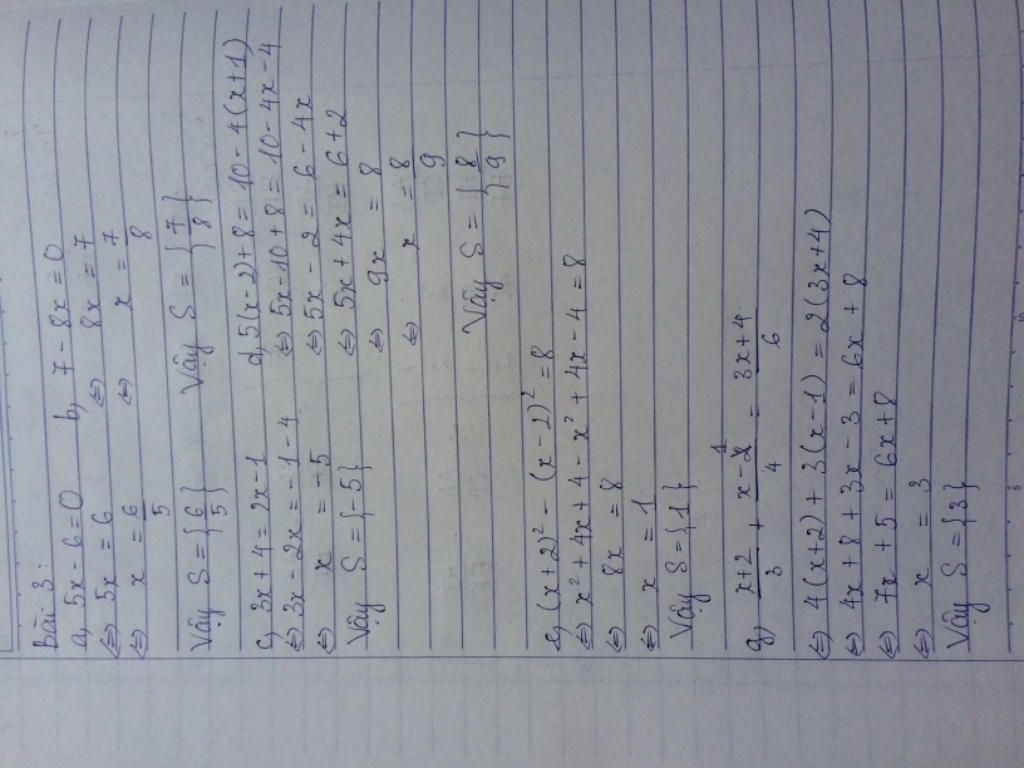 Bài 3:
a, 5x - 6 = 0
⇔ 5x = 6
⇔ x = 6/5
Vậy S = {6/5}
b, 7 - 8x = 0
⇔ 8x = 7
⇔ x = 7/8
Vậy S = {7/8}
c, 3x + 4 = 2x - 1
⇔ 3x - 2x = -1 - 4
⇔ x = -5
Vậy S = {-5}
d, 5(x-2) + 8 = 10 - 4(x+1)
⇔ 5x - 10 + 8 = 10 - 4x - 4
⇔ 5x - 2 = 6 - 4x
⇔ 5x + 4x = 6 + 2
⇔ 9x = 8
⇔ x = 8/9
Vậy S = {8/9}
e, (x+2)² - (x-2)² = 8
⇔ x² + 4x + 4 - x² + 4x - 4 = 8
⇔ 8x = 8
⇔ x = 1
Vậy S = {1}
g, (x+2)/3 + (x-1)/4 = (3x+4)/6
⇔ 4(x+2) + 3(x-1) = 2(3x+4)
⇔ 4x + 8 + 3x - 3 = 6x + 8
⇔ 7x + 5 = 6x + 8
⇔ x = 3
Vậy S = {3}